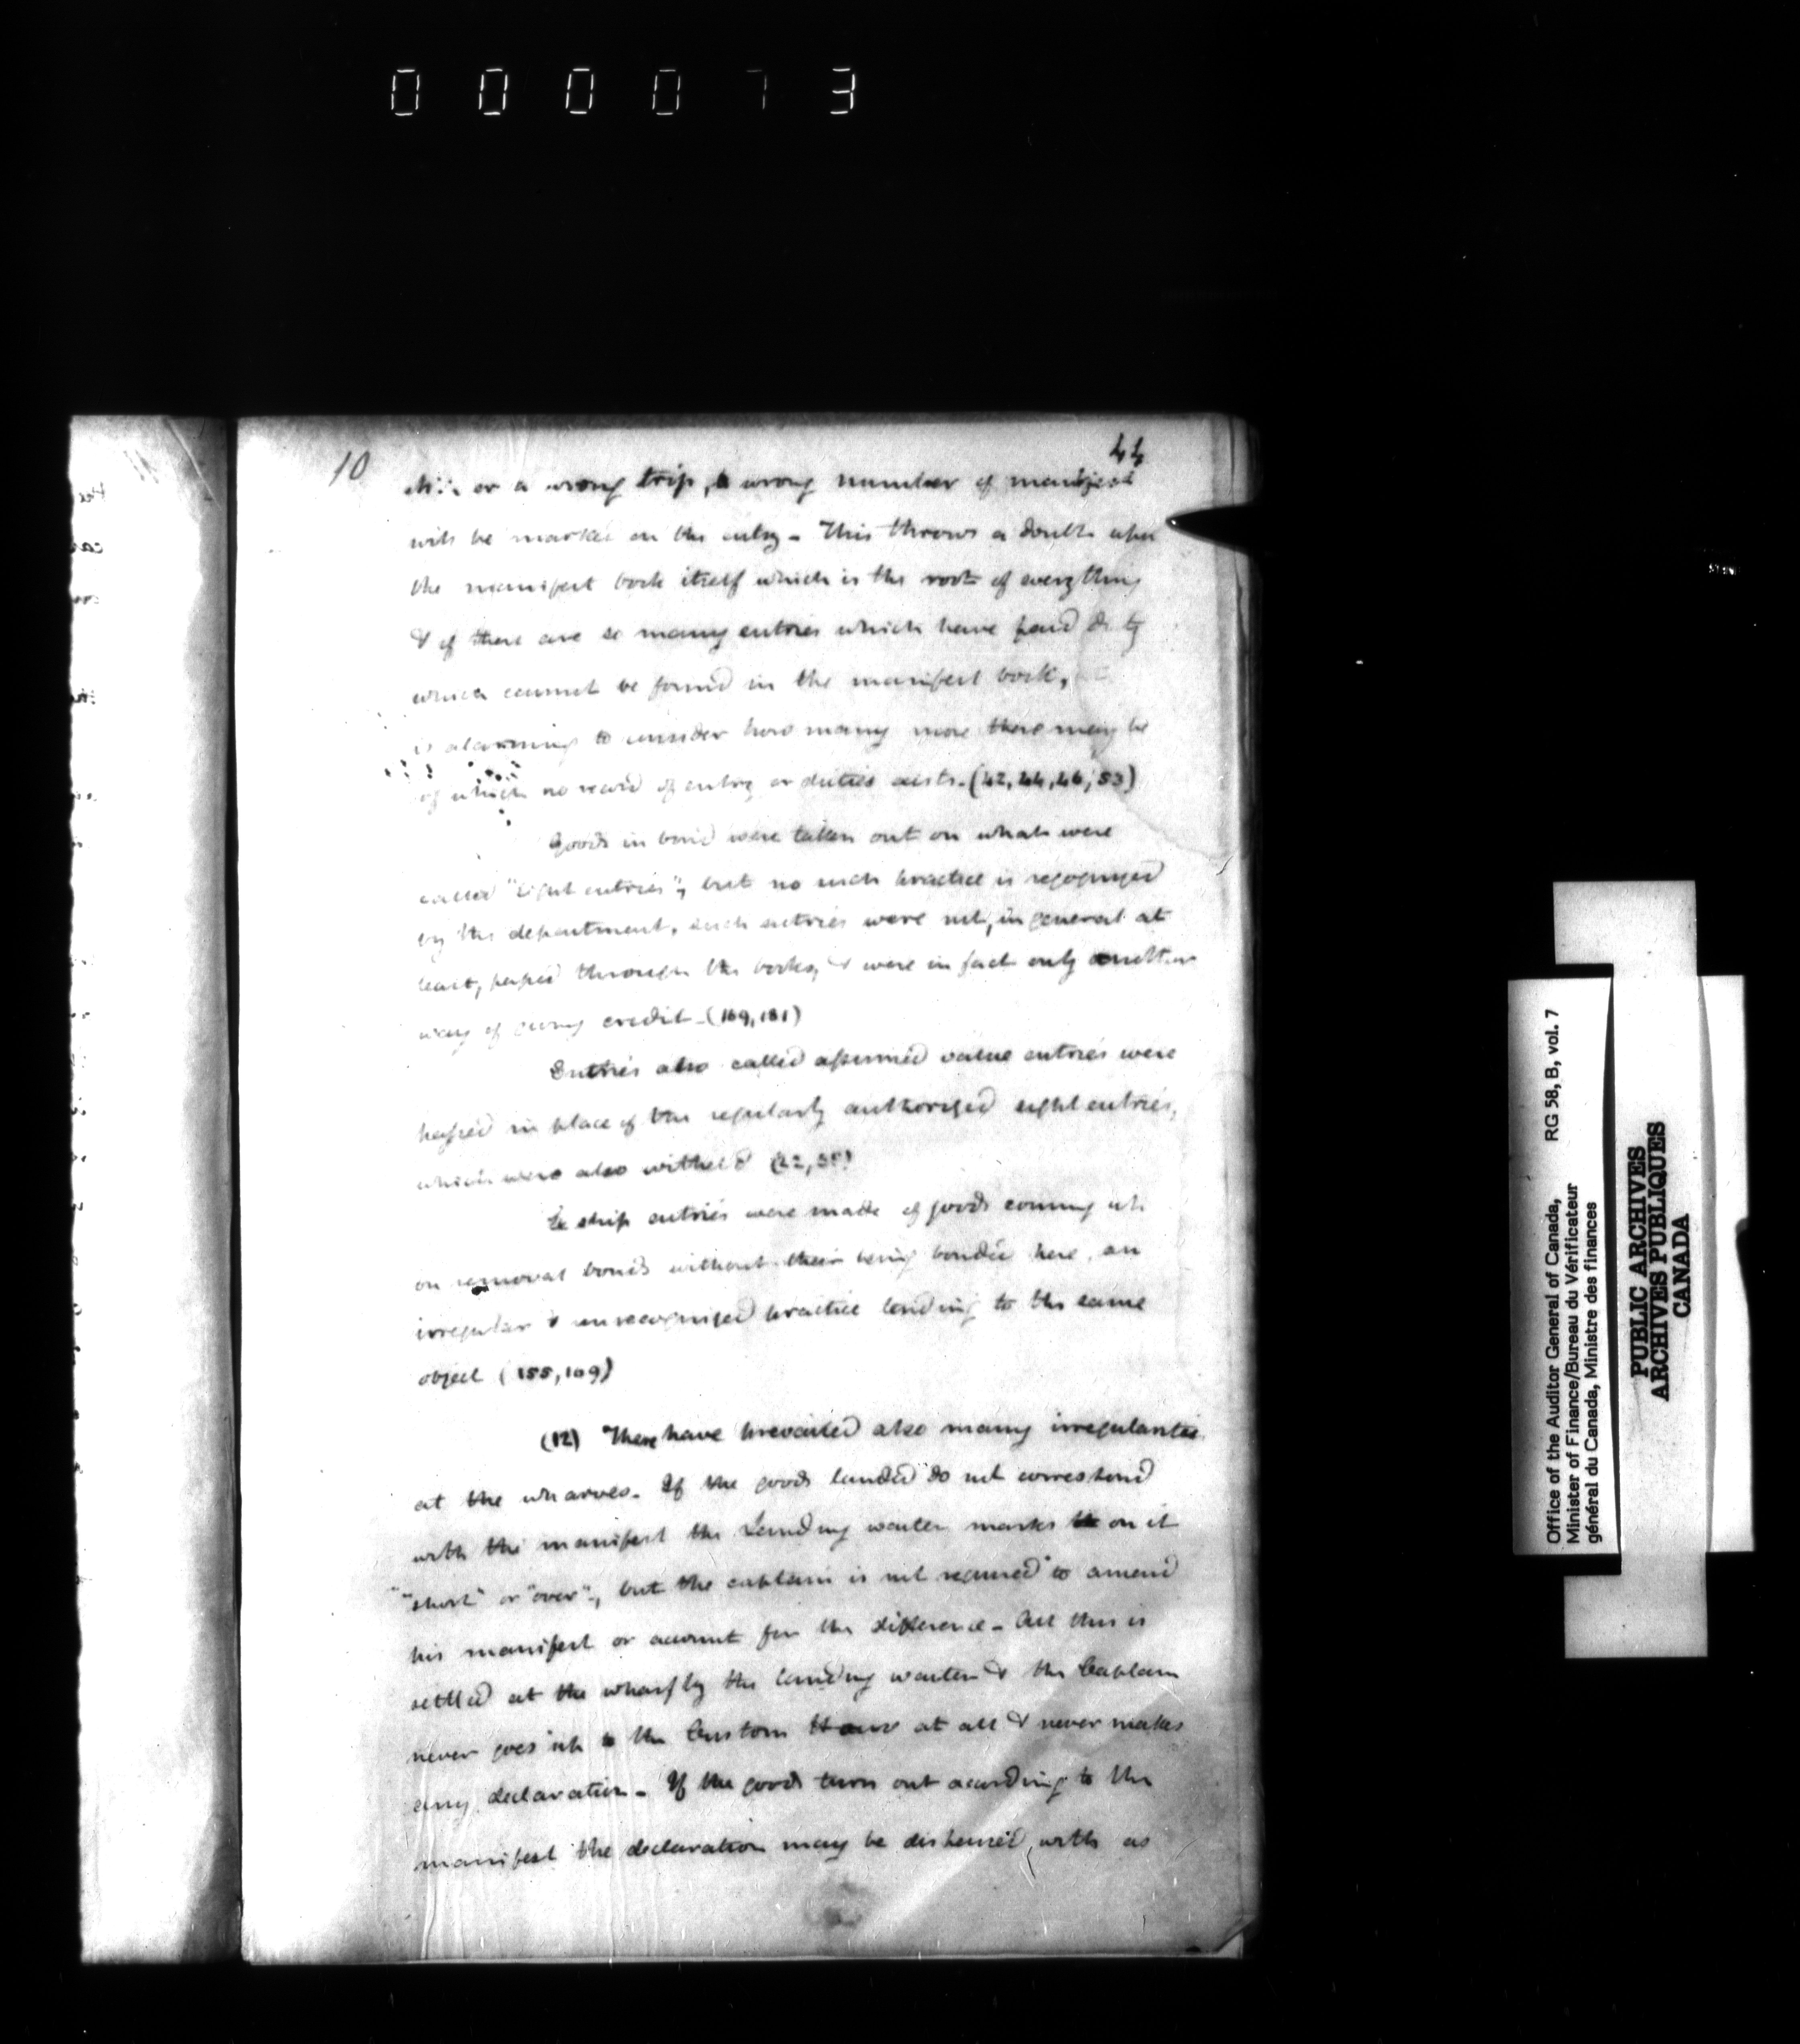 000073
10
44
or a wrong trip, a wrong number of manifest
will be marked on the entry - This throws a doubt upon
the manifest book itself which is the root of everything
& if there are so many entries which have paid duty
which cannot be found in the manifest book,
is alarming to consider how many more there may be
of which no record of entry or duties exists. (42, 44, 46, 53)
Goods in bond were taken out on what were
called "sight entries", but no such practice is recognized
by the department, such entries were not, in general at
least, passed through the books, & were in fact only another
way of giving credit - (169, 181)
Entries also called assumed value entries were
passed in place of the regularly authorized sight entries,
which were also witheld
Ex ship entries were made of goods coming up
on removal bonds without their being bonded here, an
irregular & unrecognized practice tending to the same
object (155, 169)
(12) There have prevailed also many irregularities
at the wharves. If the goods landed do not correspond
with the manifest the Landing waiter marks on it
"short" or "over", but the captain is not required to amend
his manifest or account for the difference - All this is
settled at the wharf by the landing waiter & the Captain
never goes up to the Custom House at all & never makes
any declaration - If the goods turn out according to the
manifest the declaration may be dispensed with as
Office of the Auditor General of Canada, RG 58, B, vol. 7
Minister of Finance/Bureau du Vérificateur
général du Canada, Ministre des finances
PUBLIC ARCHIVES
ARCHIVES PUBLIQUES
CANADA